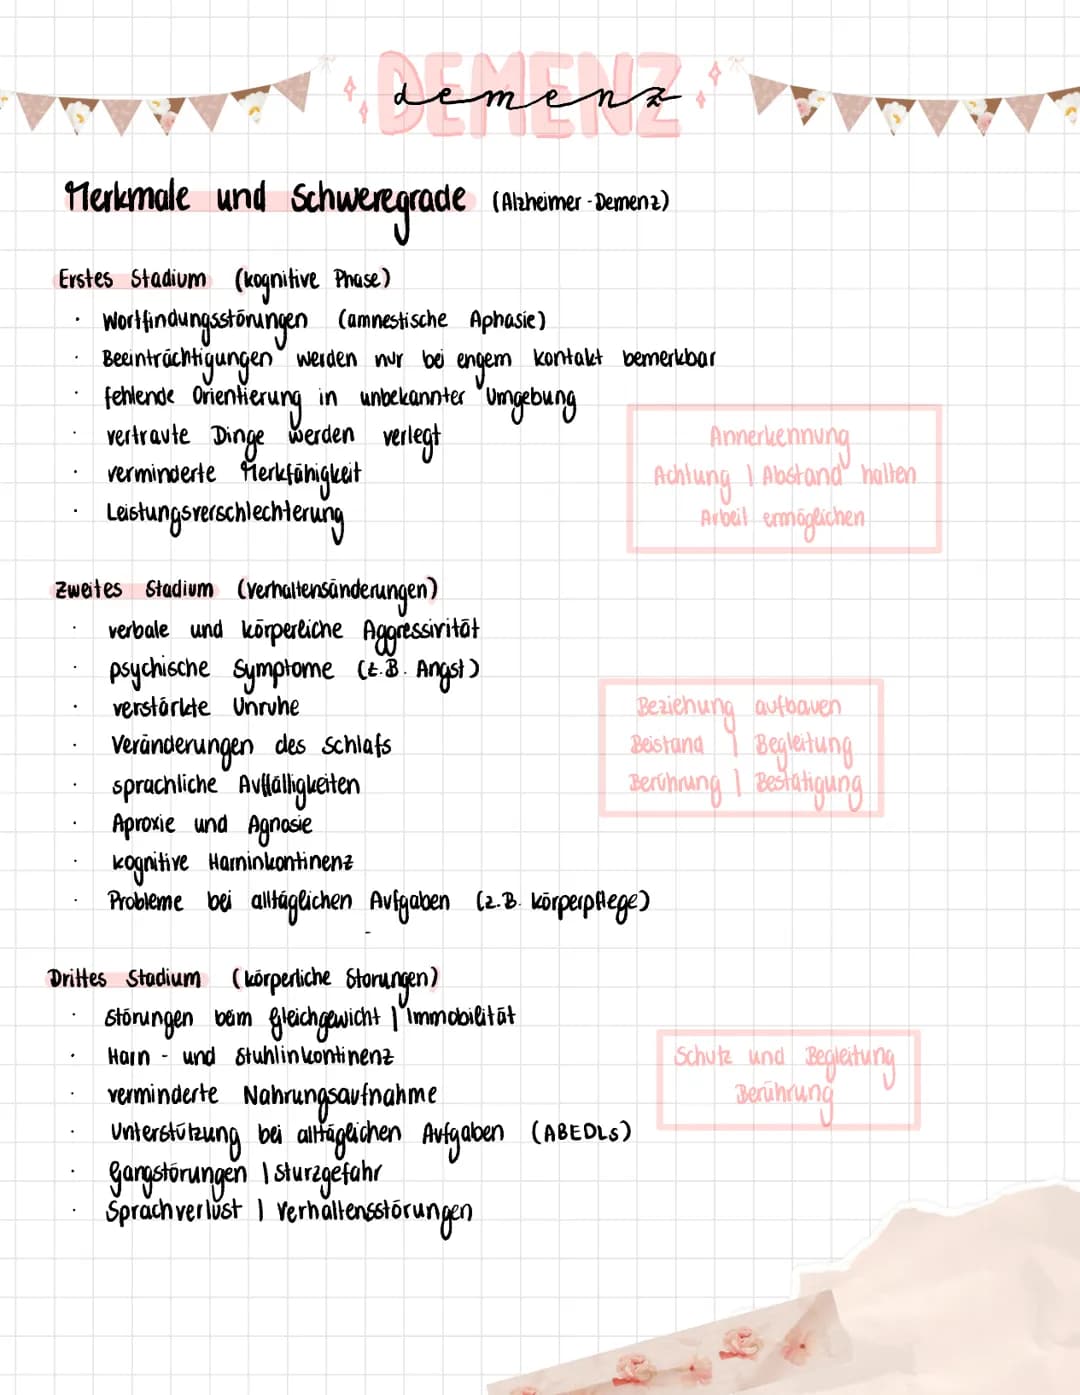 DEMENZ
demenz
Merkmale und Schweregrade (Alzheimer-Demenz)
Erstes Stadium (kognitive Phase)
· Wortfindungsstörungen (amnestische Aphasie)
· Beeinträchtigungen werden nur bei engem kontakt bemerkbar
· fehlende Orientierung in unbekannter Umgebung
· vertraute Dinge werden verlegt
· verminderte Merkfähigkeit
· Leistungsverschlechterung
Annerkennung
Achtung | Abstand halten
Arbeit ermöglichen
Zweites Stadium (Verhaltensänderungen)
· verbale und körperliche Aggressivität
· psychische Symptome (z.B. Angst)
· verstärkte Unruhe
· Veränderungen des Schlafs
· sprachliche Auffälligkeiten
· Aproxie und Agnosie
· kognitive Harninkontinenz
· Probleme bei alltäglichen Aufgaben (z.B. körperpflege)
Beziehung aufbauen
Beistand | Begleitung
Berührung | Bestätigung
Drittes Stadium (körperliche Storungen)
· Störungen beim Gleichgewicht | Immobilität
· Harn- und Stuhlinkontinenz
· verminderte Nahrungsaufnahme
· Unterstützung bei alltäglichen Aufgaben (ABEDLs)
· Gangstörungen | Sturzgefahr
· Sprachverlust | Verhaltensstörungen
Schutz und Begleitung
Berührung